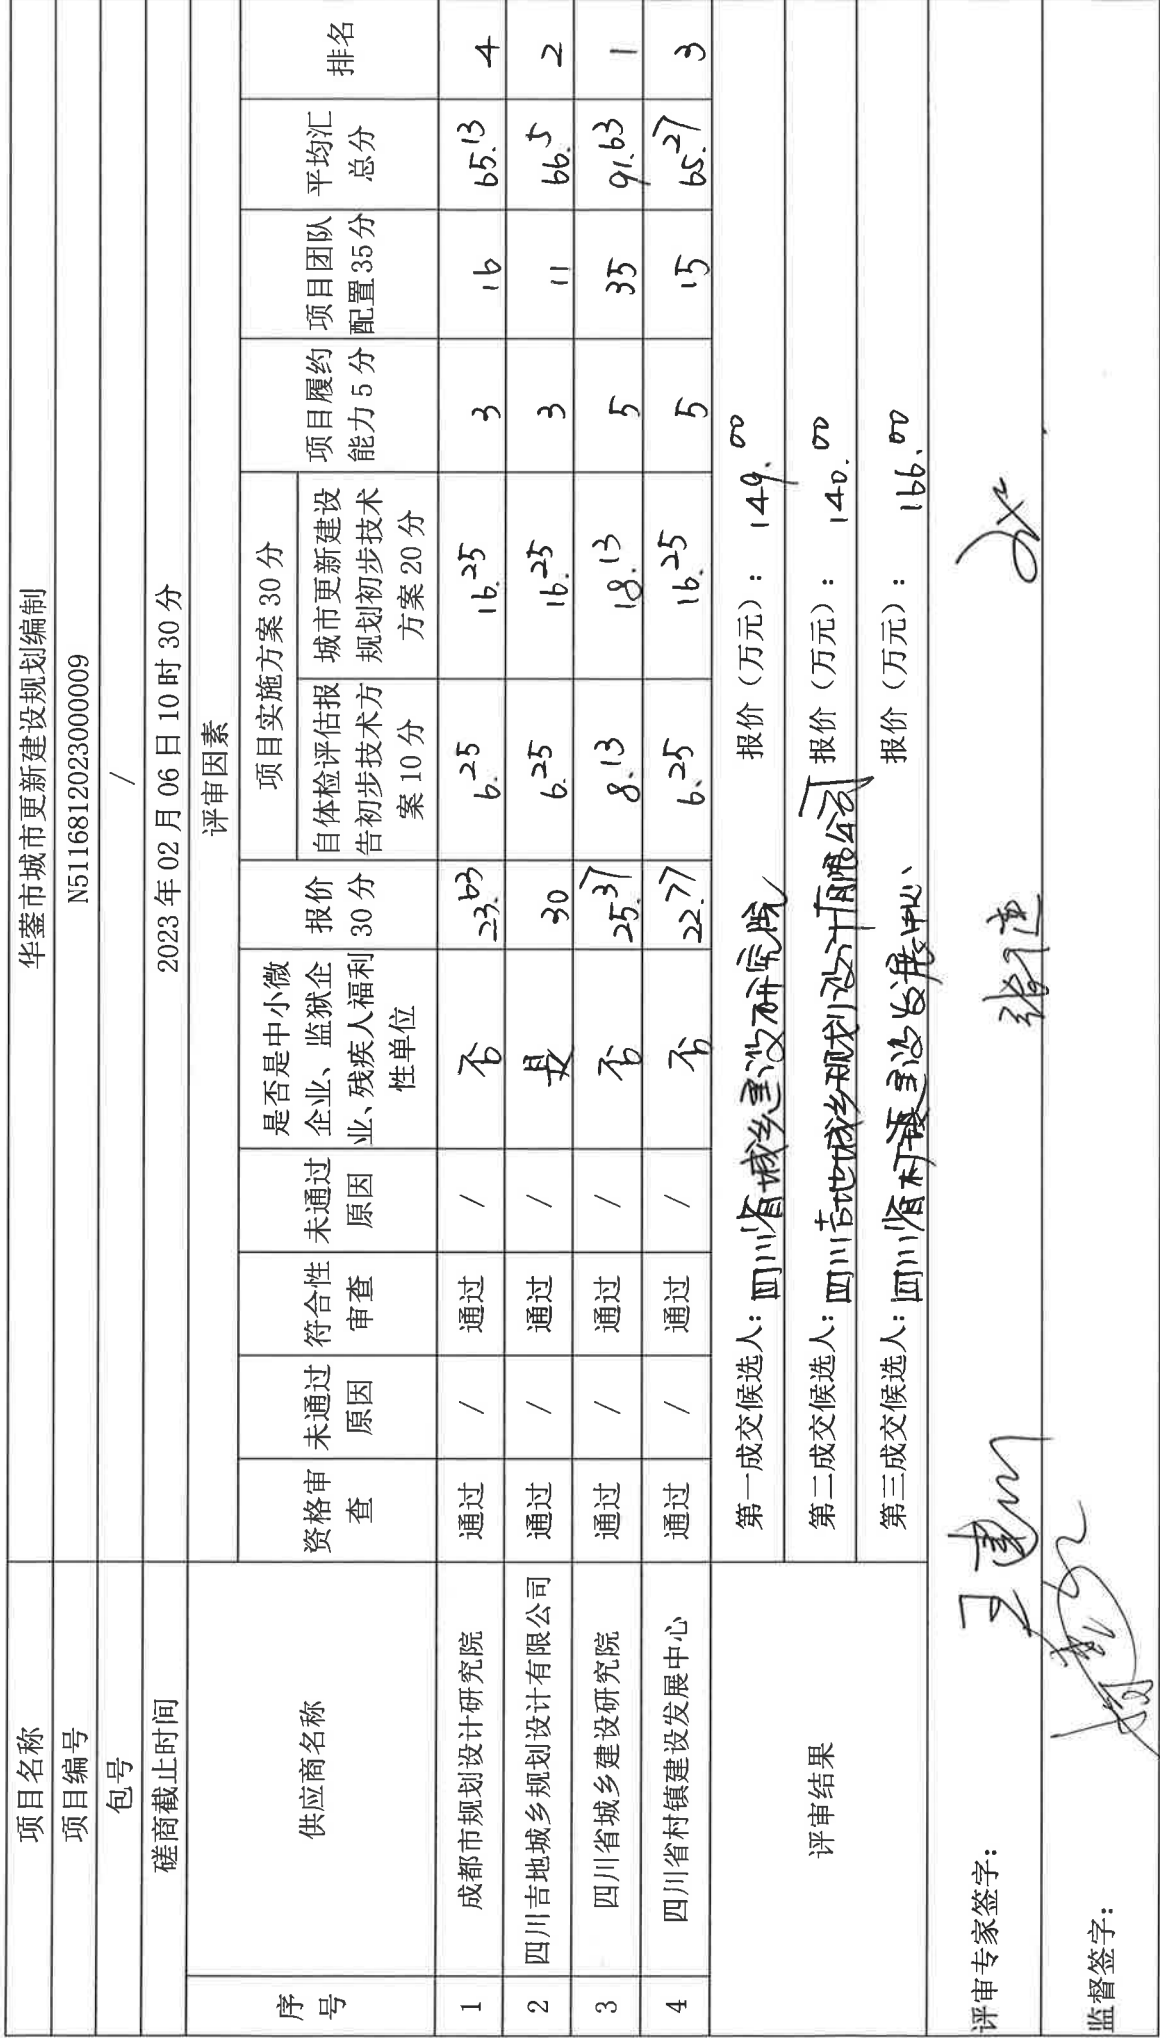 项目名称 华蓥市城市更新建设规划编制
项目编号 N5116812023000009
包号 /
磋商截止时间 2023年02月06日10时30分
序号 供应商名称 评审因素
资格审查 未通过原因 符合性审查 未通过原因 是否是中小微企业、监狱企业、残疾人福利性单位 报价30分 项目实施方案30分 项目履约能力5分 项目团队配置35分 平均汇总分 排名
自体检评估报告初步技术方案10分 城市更新建设规划初步技术方案20分
1 成都市规划设计研究院 通过 / 通过 / 否 23.63 6.25 16.25 3 16 65.13 4
2 四川吉地城乡规划设计有限公司 通过 / 通过 / 是 30 6.25 16.25 3 11 66.5 2
3 四川省城乡建设研究院 通过 / 通过 / 否 25.37 8.13 18.13 5 35 91.63 1
4 四川省村镇建设发展中心 通过 / 通过 / 否 22.77 6.25 16.25 5 15 65.27 3
评审结果
第一成交候选人：四川省城乡建设研究院 报价（万元）：149.00
第二成交候选人：四川吉地城乡规划设计有限公司 报价（万元）：140.00
第三成交候选人：四川省村镇建设发展中心 报价（万元）：166.00
评审专家签字：
监督签字：